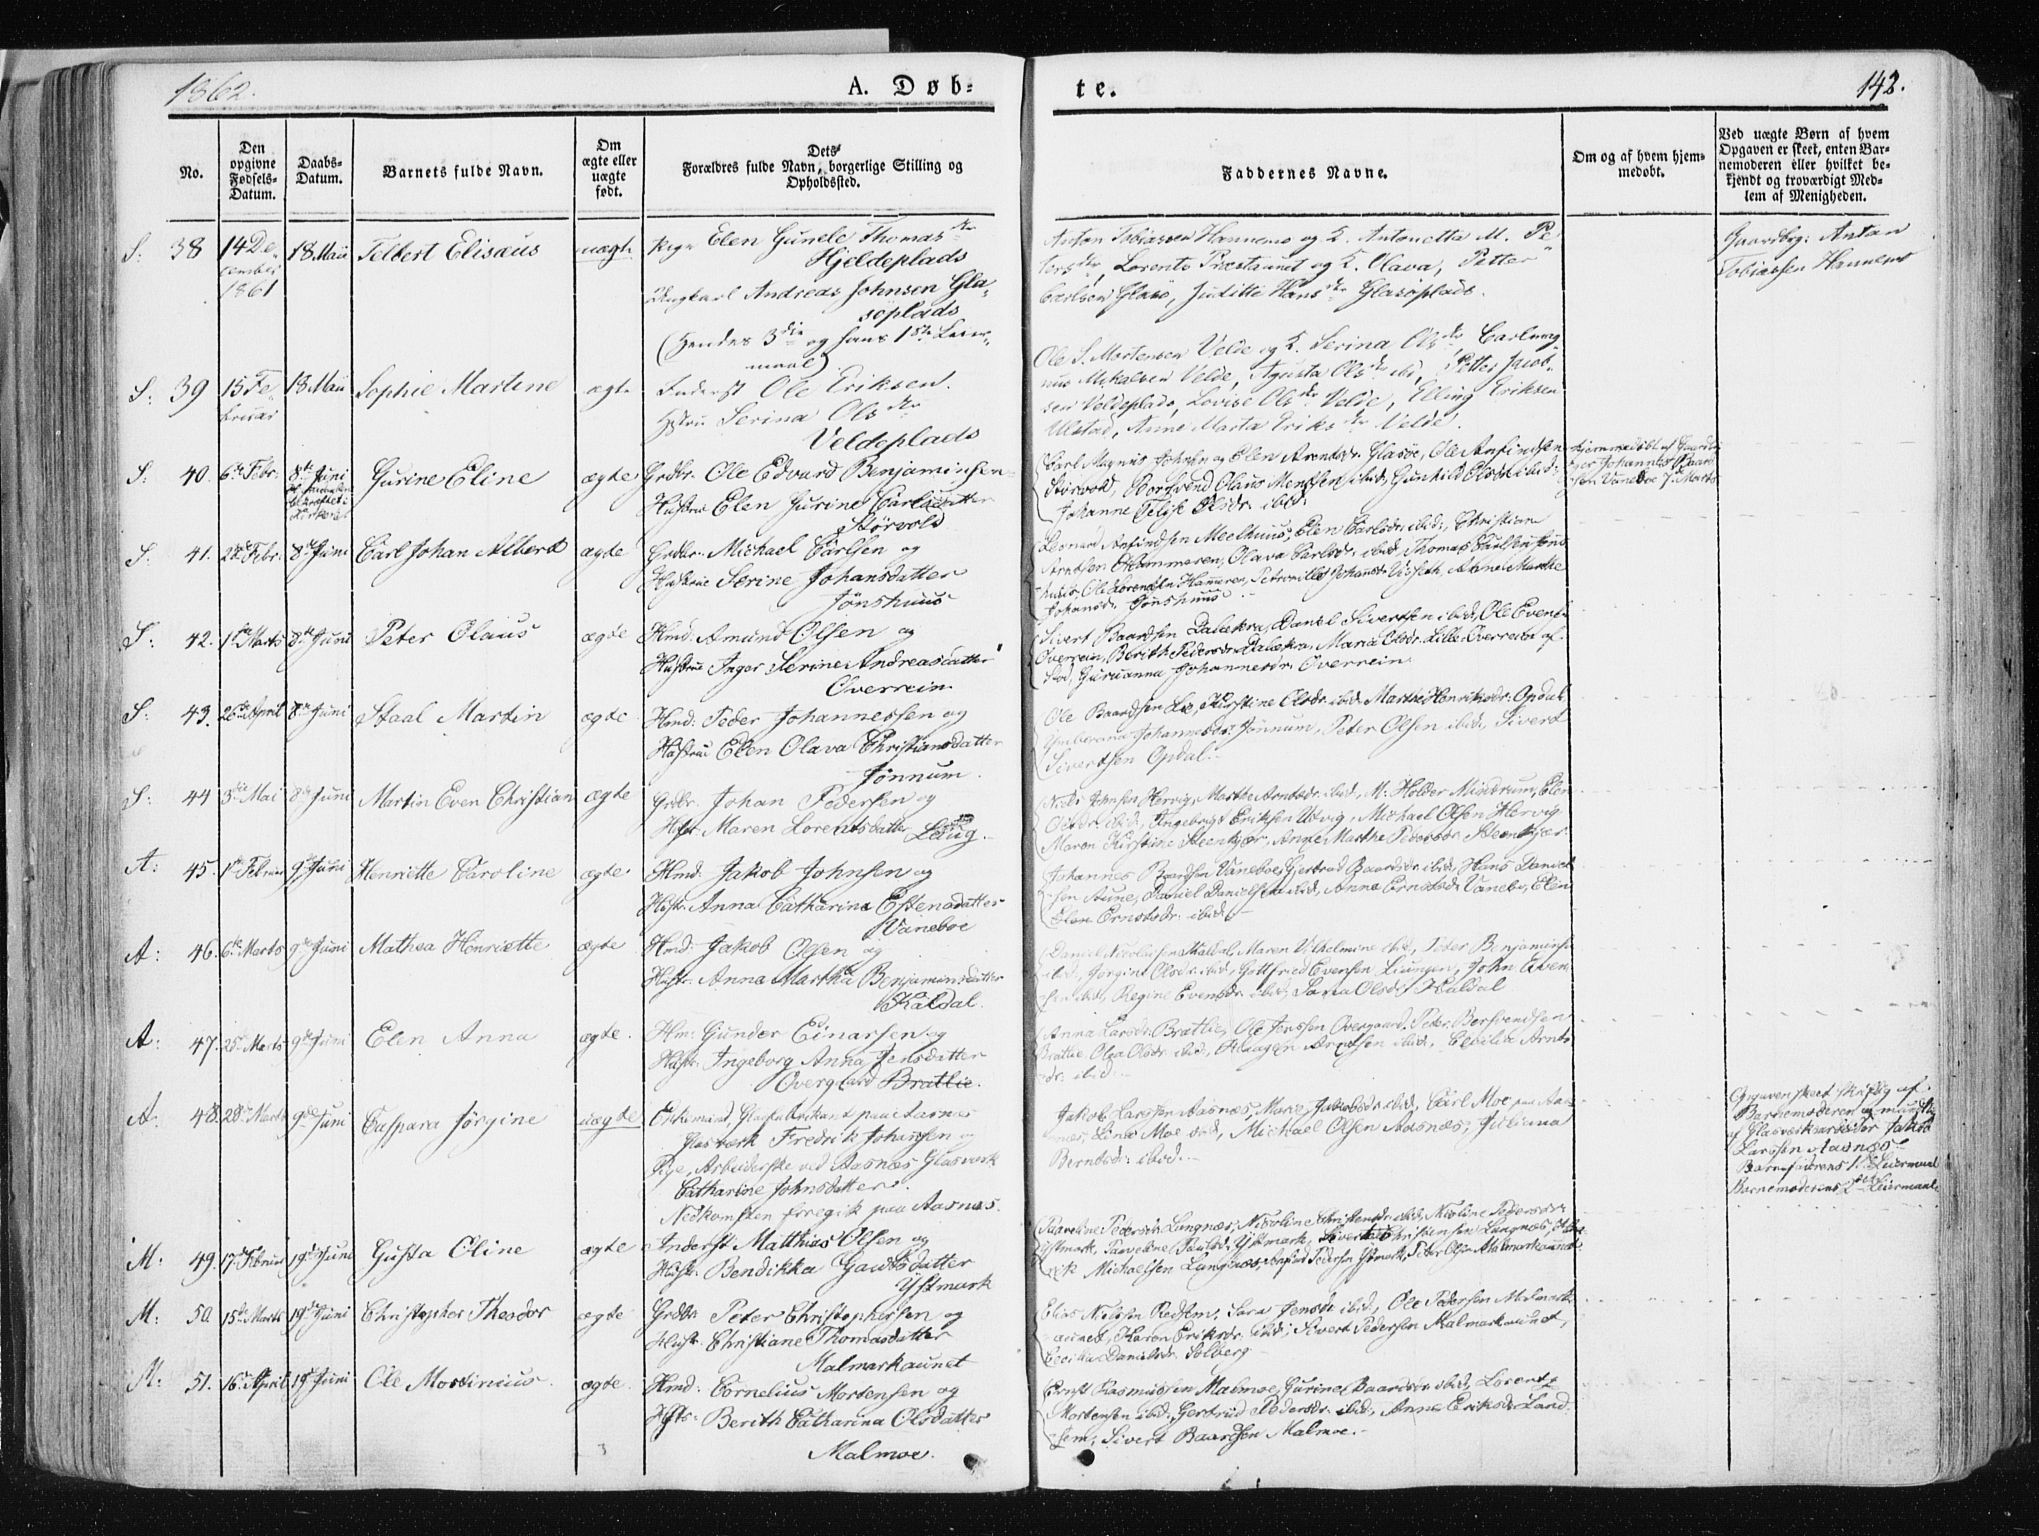 1862.
A. Døb=
te.
142.
No.
Den opgivne Fødsels-Datum.
Daabs-Datum.
Barnets fulde Navn.
Om ægte eller uægte født.
Dets Forældres fulde Navn, borgerlige Stilling og Opholdssted.
Faddernes Navne.
Om og af hvem hjem-medøbt.
Ved uægte Børn af hvem
Opgaven er skeet, enten Bar-
nemoderen eller hvilket be-
kjendt og troværdigt Med-
lem af Menigheden.
S: 38 14 De- 18 Maii Telbert Elisæus uægte Pige Elen Gunele Thomasdtr
cember Hjeldeplads
1861 Ungkarl Andreas Johnsen Gla-
søplads
(Hendes 3die og hans 1ste Leier-
maal)
Anton Tobiassen Hannemo og K. Antonette M. Pe-
tersdtr, Lorents Præstaunet og K. Olava, Petter
Carlsen Glasø, Juditte Hansdtr Glasøplads.
Gaardbrg: Anton
Tobiassen Hannemo
S: 39 15 Fe- 18 Maii Sophie Martine ægte Inderst Ole Eriksen.
bruar Hustru Serina Olsdtr
Veldeplads
Ole S. Mortensen Velde og K. Serina Olsdtr Carl Mag-
nus Mikalsen Velde, Agusta Olsdtr ibd, Petter Jacob-
sen Veldeplads, Lovise Olsdtr Velde, Elling Eriksen
Ulstad, Anne Marta Eriksdtr Velde.
S: 40. 6te Febr. 8de Juni Gurine Eline ægte Grdbr. Ole Edvard Benjaminsen
Hustru Elen Gurine Carlsdatter
Størvold
Carl Magnus Johnsen og Elen Arentsdr. Glasøe, Ole Anfindsen
Størvold, Bersvend Olaus Monssen ibid, Gunhild Olsdr ibid.
Johanne Olsdr. ibid.
Hjemmedøbt af Gaardbru-
ger Johannes Baard-
sen Vaneboe 7. Marts
S. 41. 28 Febr. 8de Juni Carl Johan Albert ægte Grdbr. Michael Carlsen og
Hustrue Serine Johansdatter
Jønshuus
Leonard Anfindsen Meelhuus, Elen Carlsdr. ibid, Christian
Arntsen Hammeren, Olava Carlsdr. ibid, Thomas Carlsen Jøns-
huus, Ole Lorentsen Hammeren, Petronille Johansdr Viseth, Anne Marthe
Johansdr. Jønshuus
S: 42. 1ste Marts 8de Juni Peter Olaus ægte Hmd. Amund Olsen og
Hustrue Inger Serine Andreasdatter
Overrein
Sivert Baardsen Dalekra, Daniel Sivertsen ibid, Ole Evens.
Overrein, Berith Pedersdr. Dalekra, Maria Olsdr. Lille Overrein
Guruanna Johannesdr. Overrein.
S: 43. 26de April 8de Juni Staal Martin ægte Hmd: Peder Johannessen og
Hustrue Elen Olava Christiansdatter
Jønnum.
Ole Baardsen Lie, Kirstine Olsdr. ibid. Marthe Henriksdr. Opdal
Johannesdr. Jønnum, Peter Olsen ibid, Sivert
Sivertsen Opdal.
S: 44 3die Mai 8de Juni Martin Even Christian ægte Grdbr. Johan Pedersen og
Hstr. Maren Lorentsdatter
Johnsen Hervig, Marthe Arntsdr. ibid, M. Holder Mindrum, Elen
ibid, Ingebrigt Eriksen Utvig, Michael Olsen Hervig
Maren Kirstine Steenkjær, Anne Marthe Pedersdr. Steenkjær.
A: 45. 1ste Februar 9de Juni Henriette Caroline ægte Hmd: Jakob Johnsen og
Hustr. Anna Catharina Estensdatter
Vaneboe
Johannes Baardsen Vaneboe, Gertrud Baardsdr. ibid. Hans Daniel-
sen Aune, Daniel Danielsen ibid, Anna Ernstsdr. Vanebo, Elen
Elen Ernstsdr. ibid.
A: 46. 6te Marts 9de Juni Mathea Henriette ægte Hmd: Jakob Olsen og
Hustr: Anna Martha Benjaminsdatter
Kaldal.
Daniel Nicolaisen Kaldal, Maren Vilhelmine ibid, Peder Benjamins.
ibid, Jørgine Olsdr. ibid, Gottfried Evensen Liungen, John Even-
sen ibid, Regine Evensdr. ibid, Sara Olsdr. Kaldal
A: 47. 25de Marts 9de Juni Elen Anna ægte. Hm: Gunder Einarsen og
Hustr. Ingeborg Anna Jensdatter
Overgaard Bratlie.
Anna Larsdr. Brætlie, Ole Jenssen Overgaard, Peter Bersvendsen
Brattlie, Olea Olsdr. ibid, Haagen Arntsen ibid, Cecilie Arnts
dr. ibid.
A: 48. 28de Marts 9de Juni Caspara Jørgine uægte Enkemand, Glasfabrikant paa Aasnæs
Glasværk Fredrik Johansen og
Pige, Arbeiderske ved Aasnæs Glasværk
Catharine Johnsdatter.
Nedkomsten foregik paa Aasnæs.
Jakob Larssen Aasnæs, Marie Jakobsdr. ibid, Carl Moe paa Aas-
næs, Lina Moe ibid, Michael Olsen Aasnæs, Juliana
Berntsdr. ibid.
Opgaven skeet skriftlig af
Barnemoderen og mundtlig
af Glasværksarbeider Jakob
Larssen Aasnæs.
Barnefaderens 1ste Leiermaal
Barnemoderens 2det Leiermaal.
M: 49. 17de Februar 19de Juni Gusta Oline ægte Inderst Matthias Olsen og
Hustr. Bendikka Gautsdatter
Ystmark
Paaveline Pedersdr. Lungnæs, Nicoline Christensdr. ibid, Nicoline Pedersdr.
Ystmark, Paaveline Paulsdr. Ystmark, Sivert Christiansen Lungnæs,
Michaelsen Lungnæs, Pedersen Ystmark, Peter Olsen Malmarkaunet
M: 50. 15de Marts 19de Juni Christopher Theodor ægte Grdbr Peter Christophersen og
Hustr. Christiane Thomasdatter
Malmarkaunet
Elias Nilssen Rødsem, Sara Jensdr. ibid, Ole Pedersen Malmark-
aunet, Karen Eriksdr. ibid, Sivert Pedersen Malmarkaunet,
Cecilia Danielsdr. Solberg
M: 51. 16de April 19de Juni Ole Mortinius ægte. Hmd: Cornelius Mortensen og
Hstr: Berith Catharina Olsdatter
Malmoe.
Ernst Rasmussen Malmoe, Gurine Baardsdr. ibid, Lorents
Mortensen ibid, Gertrud Pedersdr. ibid, Anne Eriksdr Land-
sem, Sivert Baardsen Malmoe.